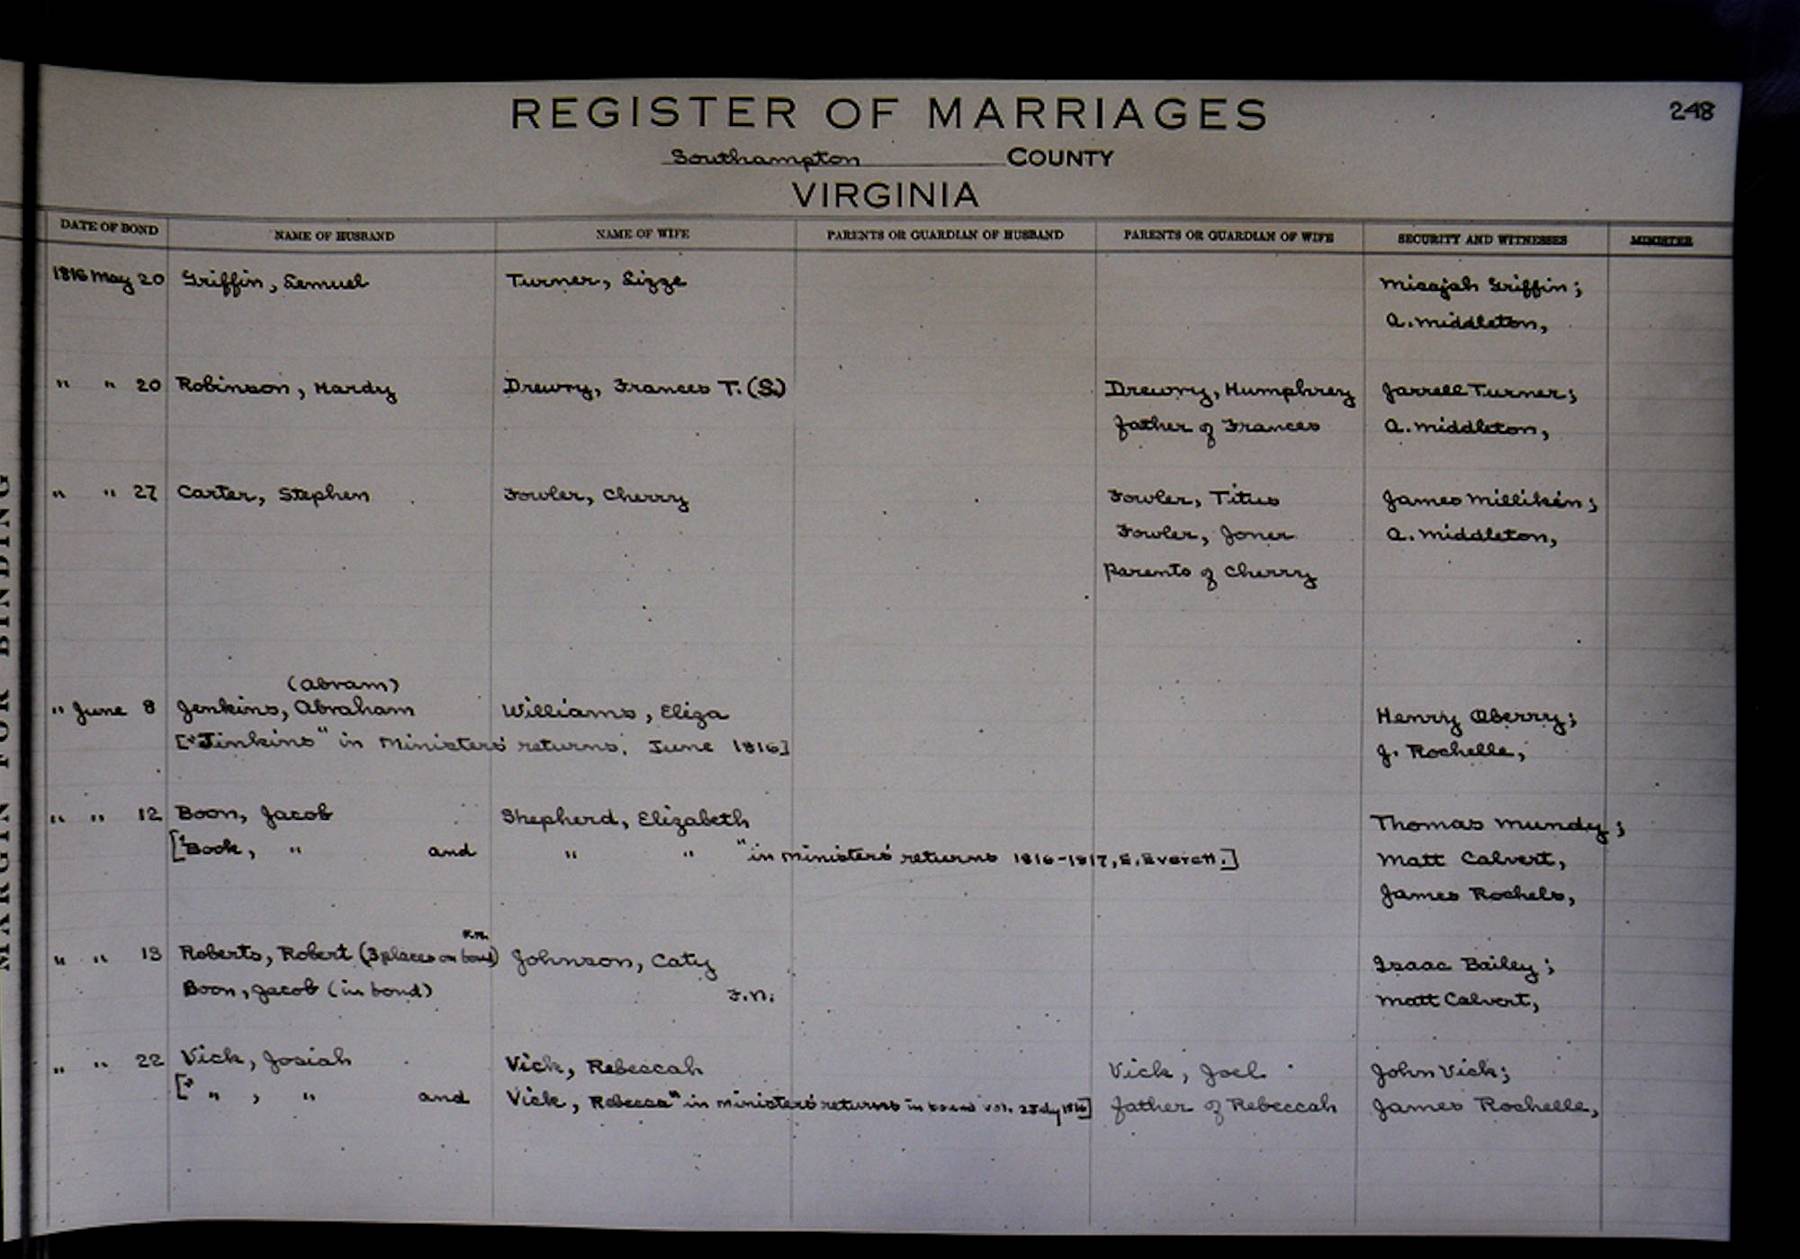 REGISTER OF MARRIAGES 248
Southampton COUNTY
VIRGINIA
DATE OF BOND NAME OF HUSBAND NAME OF WIFE PARENTS OR GUARDIAN OF HUSBAND PARENTS OR GUARDIAN OF WIFE SECURITY AND WITNESSES MINISTER
1816 May 20 Griffin, Lemuel Turner, Lizze Micajah Griffin;
A. Middleton,
" " 20 Robinson, Hardy Drewry, Frances T. (S.) Drewry, Humphrey Jarrell Turner;
father of Frances A. Middleton,
" " 27 Carter, Stephen Fowler, Cherry Fowler, Titus James Milliken;
Fowler, Joner A. Middleton,
Parents of Cherry
(Abram)
" June 8 Jenkins, Abraham Williams, Eliza Henry Oberry;
["Jinkins" in Ministers' returns, June 1816] J. Rochelle,
" " 12 Boon, Jacob Shepherd, Elizabeth Thomas Mundy;
["Book, " and " " " in Ministers' returns 1816-1817, E. Everett.] Matt Calvert,
James Rochels,
F.N.
" " 13 Roberts, Robert (3 places on bond) Johnson, Caty Isaac Bailey;
Boon, Jacob (in bond) F.N. Matt Calvert,
" " 22 Vick, Josiah Vick, Rebeccah Vick, Joel John Vick;
[" " , " and Vick, Rebecca" in Ministers' returns in bound vol. 2 July 1816] father of Rebeccah James Rochelle,
MARGIN FOR BINDING